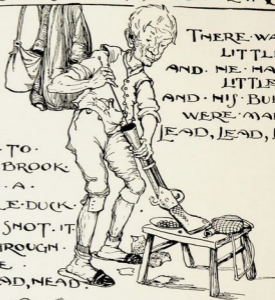 THERE WA
LITTL
AND HE HA
LITTLE
AND HIS BU
WERE MA
LEAD, LEAD, L
TO
BROOK
A
E DUCK
SHOT IT
ROUGH
E
AD, HEAD.